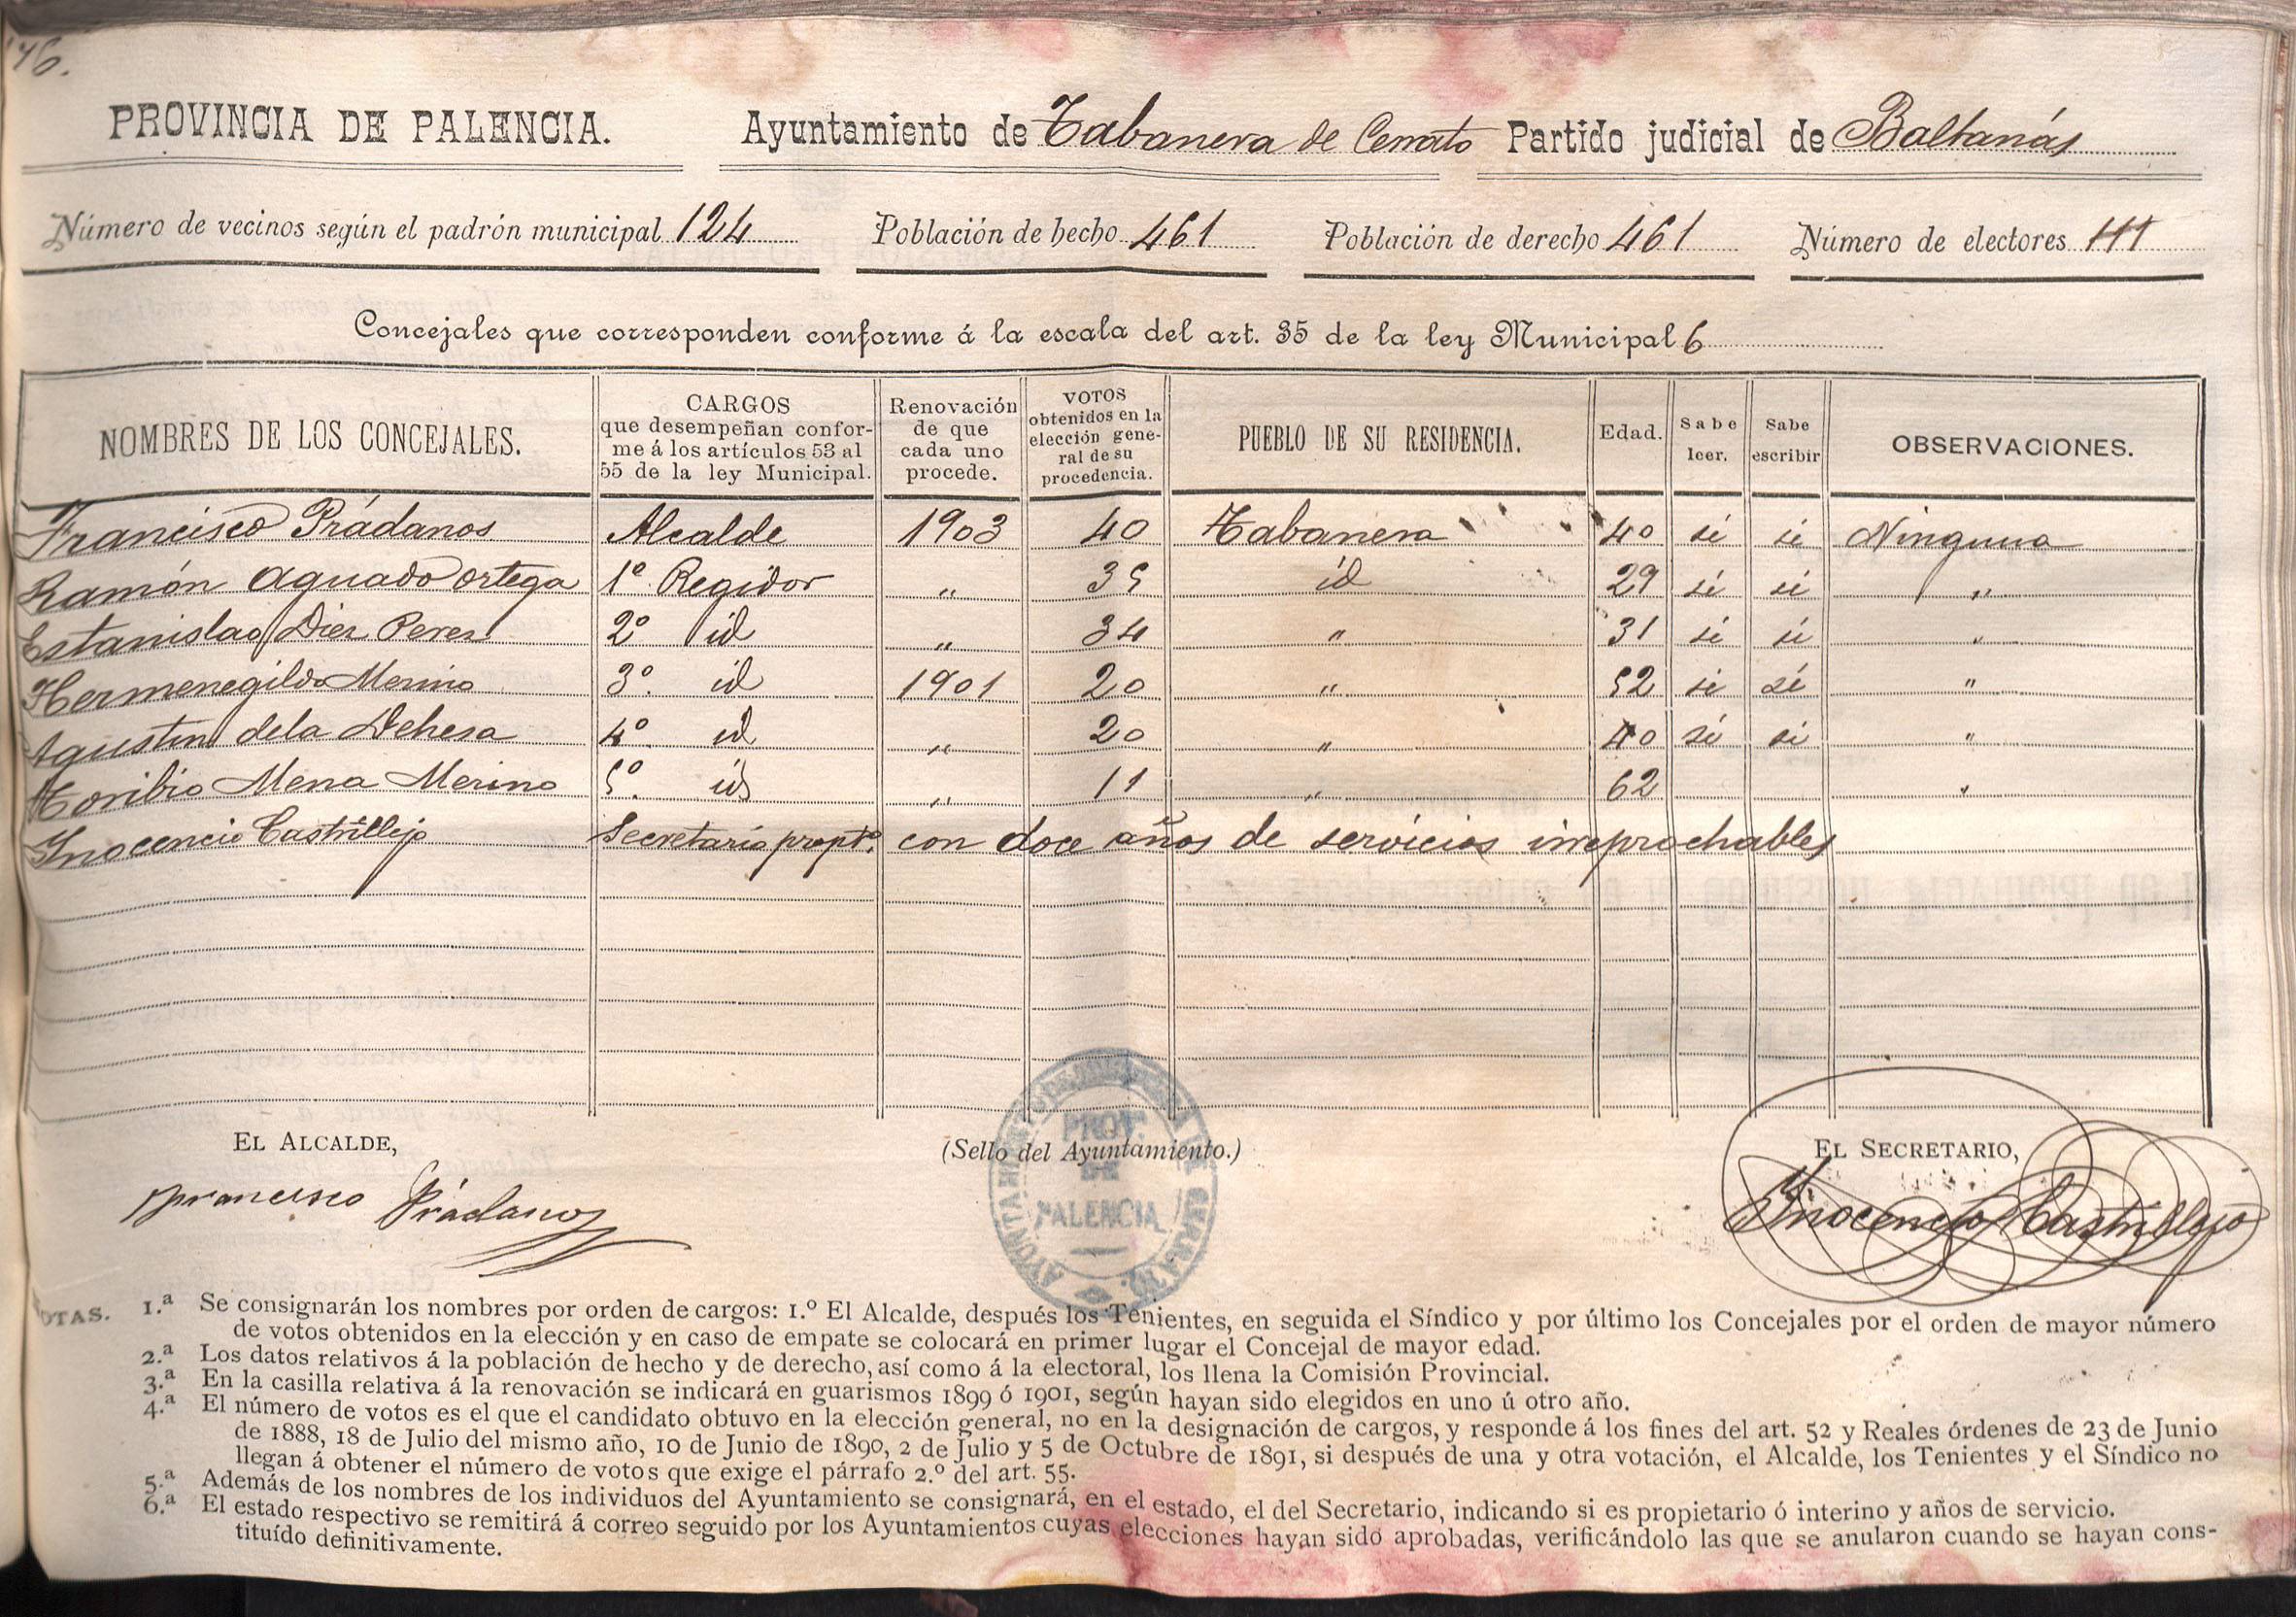 76.
PROVINCIA DE PALENCIA. Ayuntamiento de Tabanera de Cerrato Partido judicial de Baltanás
Número de vecinos según el padrón municipal 124 Población de hecho 461 Población de derecho 461 Número de electores 111
Concejales que corresponden conforme á la escala del art. 35 de la ley Municipal 6
NOMBRES DE LOS CONCEJALES. CARGOS que desempeñan confor- me á los artículos 53 al 55 de la ley Municipal. Renovación de que cada uno procede. VOTOS obtenidos en la elección gene- ral de su procedencia. PUEBLO DE SU RESIDENCIA. Edad. Sabe leer. Sabe escribir OBSERVACIONES.
Francisco Prádanos Alcalde 1903 40 Tabanera 40 si si Ninguna
Ramón Aguado Ortega 1º Regidor " 35 id 29 si si "
Estanislao Diez Perez 2º id " 34 " 31 si si "
Hermenegildo Merino 3º. id 1901 20 " 52 si si "
Agustin dela Dehesa 4º. id " 20 " 40 si si "
Toribio Mena Merino 5º. id " 11 " 62 "
Inocencio Castrillejo Secretario propto. con doce años de servicios irreprochables
EL ALCALDE, (Sello del Ayuntamiento.) EL SECRETARIO,
PROV. DE PALENCIA
Francisco Prádanos Inocencio Castrillejo
OTAS. 1.ª Se consignarán los nombres por orden de cargos: 1.º El Alcalde, después los Tenientes, en seguida el Síndico y por último los Concejales por el orden de mayor número
de votos obtenidos en la elección y en caso de empate se colocará en primer lugar el Concejal de mayor edad.
2.ª Los datos relativos á la población de hecho y de derecho, así como á la electoral, los llena la Comisión Provincial.
3.ª En la casilla relativa á la renovación se indicará en guarismos 1899 ó 1901, según hayan sido elegidos en uno ú otro año.
4.ª El número de votos es el que el candidato obtuvo en la elección general, no en la designación de cargos, y responde á los fines del art. 52 y Reales órdenes de 23 de Junio
de 1888, 18 de Julio del mismo año, 10 de Junio de 1890, 2 de Julio y 5 de Octubre de 1891, si después de una y otra votación, el Alcalde, los Tenientes y el Síndico no
llegan á obtener el número de votos que exige el párrafo 2.º del art. 55.
5.ª Además de los nombres de los individuos del Ayuntamiento se consignará, en el estado, el del Secretario, indicando si es propietario ó interino y años de servicio.
6.ª El estado respectivo se remitirá á correo seguido por los Ayuntamientos cuyas elecciones hayan sido aprobadas, verificándolo las que se anularon cuando se hayan cons-
tituído definitivamente.